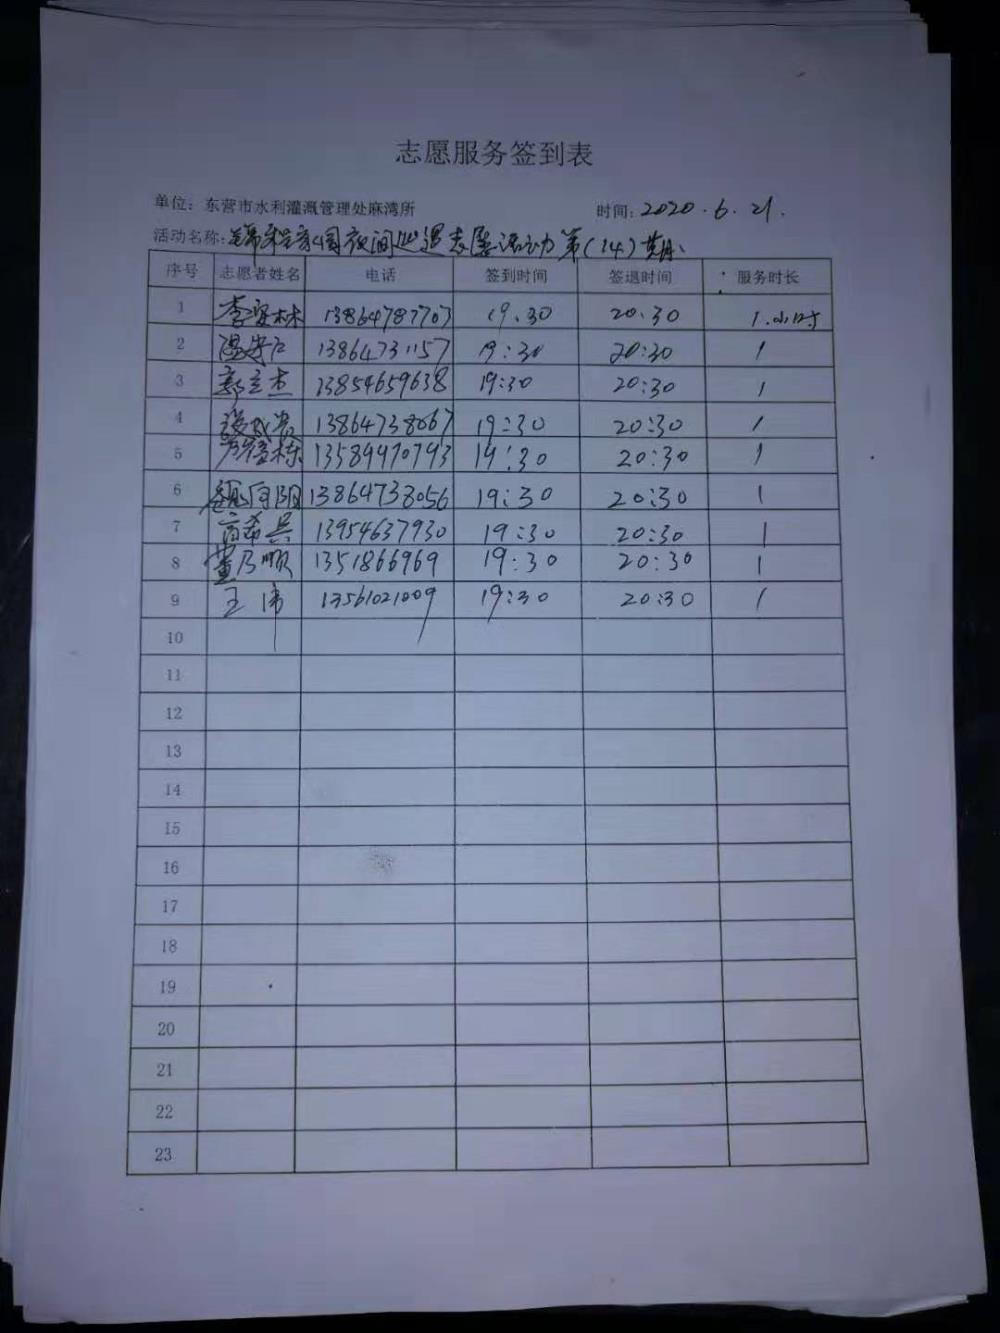 志愿服务签到表
单位：东营市水利灌溉管理处麻湾所 时间：2020.6.21.
活动名称： 夜间 志愿活动第(14)期
序号 志愿者姓名 电话 签到时间 签退时间 服务时长
1 李 林 13864787703 19.30 20.30 1.小时
2 13864731157 19:30 20:30 1
3 郭立杰 13854659638 19:30 20:30 1
4 13864738067 19:30 20:30 1
5 13589970793 19:30 20:30 1
6 魏向阳 13864738056 19:30 20:30 1
7 高希兵 13954637930 19:30 20:30 1
8 董乃顺 1351866969 19:30 20:30 1
9 王伟 13561021009 19:30 20:30 1
10
11
12
13
14
15
16
17
18
19
20
21
22
23